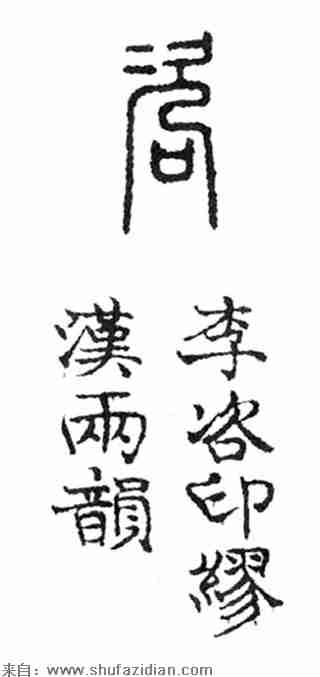 咨
李咨印繆
漢兩韻
来自：www.shufazidian.com